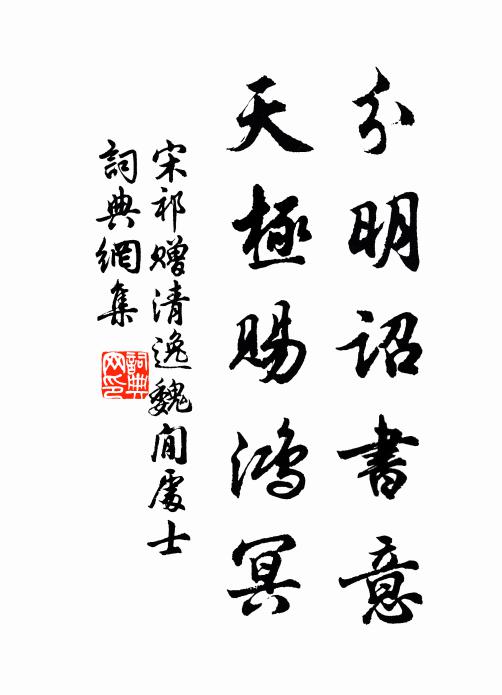 分明詔書意
天極賜鴻冥
宋祁贈清逸魏閒處士
詞典網集
詞典网印